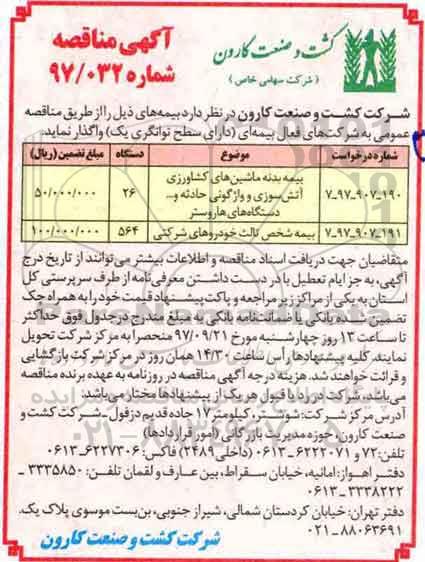 آگهی مناقصه
شماره ۹۷/۰۳۲
کشت و صنعت کارون
(شرکت سهامی خاص)
شرکت کشت و صنعت کارون در نظر دارد بیمه‌های ذیل را از طریق مناقصه
عمومی به شرکت‌های فعال بیمه‌ای (دارای سطح توانگری یک) واگذار نماید.
شماره درخواست موضوع دستگاه مبلغ تضمین (ریال)
۷-۹۷-۹۰۷-۱۹۰ بیمه بدنه ماشین‌های کشاورزی آتش‌سوزی و واژگونی حادثه و... دستگاه‌های هاروستر ۲۶ ۵۰/۰۰۰/۰۰۰
۷-۹۷-۹۰۷-۱۹۱ بیمه شخص ثالث خودروهای شرکتی ۵۶۴ ۱۰۰/۰۰۰/۰۰۰
متقاضیان جهت دریافت اسناد مناقصه و اطلاعات بیشتر می‌توانند از تاریخ درج
آگهی، به جز ایام تعطیل با در دست داشتن معرفی‌نامه از طرف سرپرستی کل
استان به یکی از مراکز زیر مراجعه و پاکت پیشنهاد قیمت خود را به همراه چک
تضمین شده بانکی یا ضمانتنامه بانکی به مبلغ مندرج در جدول فوق حداکثر
تا ساعت ۱۳ روز چهارشنبه مورخ ۹۷/۰۹/۲۱ منحصرا به مرکز شرکت تحویل
نمایند. کلیه پیشنهادها رأس ساعت ۱۴/۳۰ همان روز در مرکز شرکت بازگشایی
و قرائت خواهند شد. هزینه درجه آگهی مناقصه در روزنامه به عهده برنده مناقصه
می‌باشد. شرکت در رد یا قبول هر یک از پیشنهادها مختار می‌باشد.
آدرس مرکز شرکت: شوشتر، کیلومتر ۱۷ جاده قدیم دزفول ـ شرکت کشت و
صنعت کارون، حوزه مدیریت بازرگانی (امور قراردادها)
تلفن: ۷۲ و ۶۲۲۲۰۷۱ ـ ۰۶۱۳ (داخلی ۲۴۸۹) فاکس: ۶۲۲۷۳۰۶ ـ ۰۶۱۳
دفتر اهواز: امانیه، خیابان سقراط، بین عارف و لقمان تلفن: ۳۳۳۵۸۵۰ ـ
۳۳۳۸۲۲۲ ـ ۰۶۱۳
دفتر تهران: خیابان کردستان شمالی، شیراز جنوبی، بن‌بست موسوی پلاک یک.
۸۸۰۶۳۶۹۱ ـ ۰۲۱
شرکت کشت و صنعت کارون